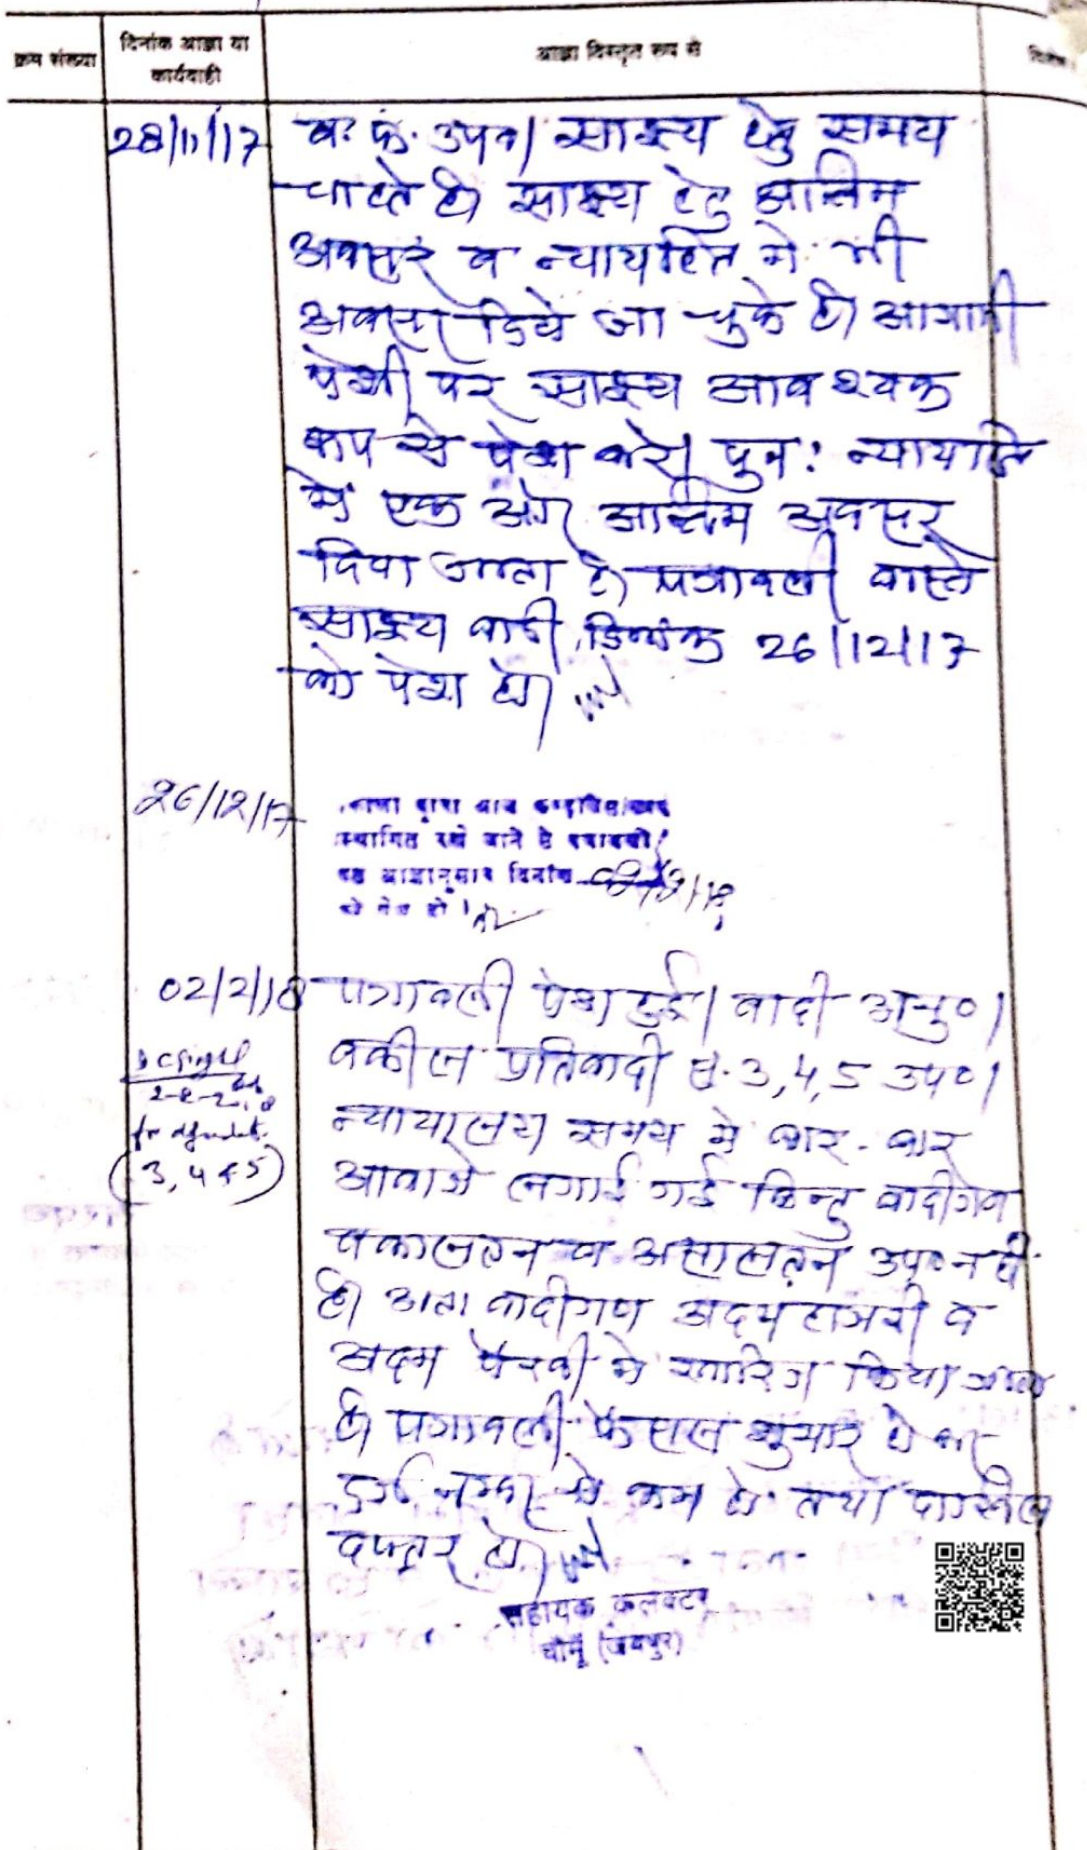 क्रम संख्या
दिनांक आज्ञा या
कार्यवाही
आज्ञा विस्तृत रूप से
28/11/17
ब. फ. उप०। साक्ष्य हेतु समय
चाहते है। साक्ष्य हेतु अन्तिम
अवसर व न्यायहित मे भी
अवसर दिये जा चुके है। आगामी
पेशी पर साक्ष्य आवश्यक
रूप से पेश करे। पुन: न्यायहित
मे एक और अन्तिम अवसर
दिया जाता है। पत्रावली वास्ते
साक्ष्य वादी दिनांक 26/12/17
को पेश हो।
26/12/17
द्वारा
स्थगित रखे जाने से पत्रावली
आज्ञानुसार दिनांक
को पेश हो।
02/2/18
पत्रावली पेश हुई। वादी अनु०।
वकील प्रतिवादी सं. 3,4,5 उप०।
न्यायालय समय मे बार-बार
आवाजे लगाई गई किन्तु वादीगण
वकालतन व असालतन उप० नही
है। अतः वादीगण अदम हाजरी व
अदम पैरवी मे खारिज किया जाता
है। पत्रावली फैसल शुमार हो कर
दर्ज नम्बर से कम हो तथा दाखिल
दफ्तर हो।
(3, 4 & 5)
सहायक कलक्टर
चौमूं (जयपुर)